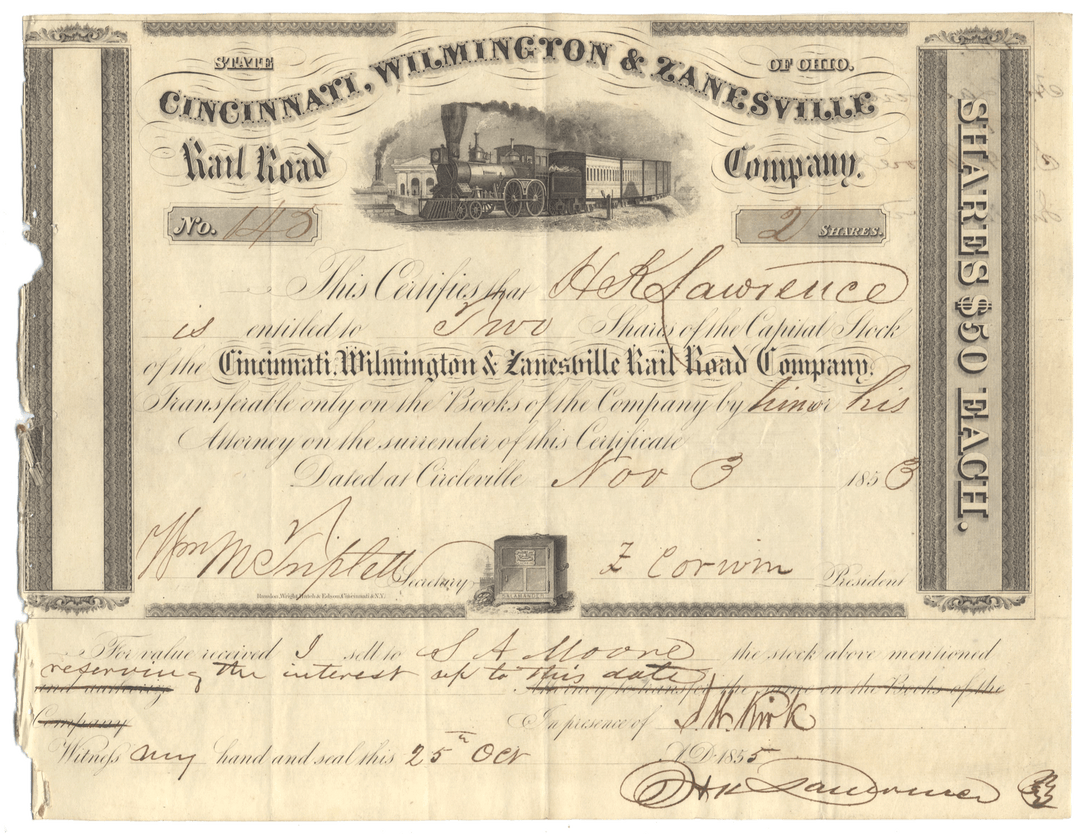 STATE OF OHIO.
CINCINNATI, WILMINGTON & ZANESVILLE
Rail Road Company.
No. 145 2 SHARES.
This Certifies that H K Lawrence
is entitled to Two Shares of the Capital Stock
of the Cincinnati, Wilmington & Zanesville Rail Road Company.
Transferable only on the Books of the Company by him or his
Attorney on the surrender of this Certificate
Dated at Circleville Nov 3 1853
Wm McTriplett Secretary Z Corwin President
SALAMANDER
Rawdon, Wright, Hatch & Edson, Cincinnati & N.Y.
SHARES $50 EACH.
For value received I sell to S A Moore the stock above mentioned
reserving the interest up to this date
and authorize Attorney to transfer the same on the Books of the
Company In presence of J. W. Kirk
Witness my hand and seal this 25th Oct A.D. 1855
H K Lawrence